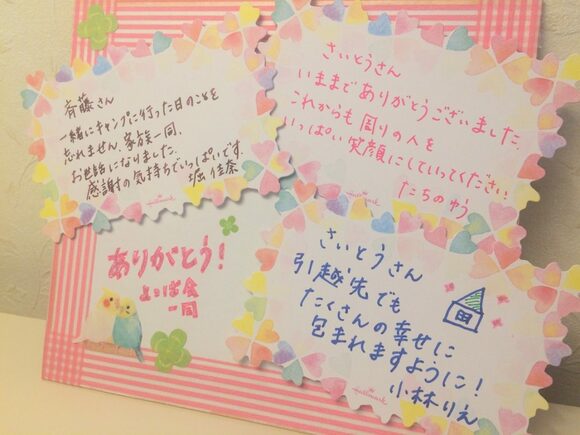 斉藤さん
一緒にキャンプに行った日のことを
忘れません。家族一同、
お世話になりました。
感謝の気持ちでいっぱいです。
堀 佳奈
Hallmark
さいとうさん
いままでありがとうございました。
これからも周りの人を
いっぱい笑顔にしていってください!
たちの ゆう
Hallmark
ありがとう!
よっぱ会
一同
さいとうさん
引越先でも
たくさんの幸せに
包まれますように!
小林りえ
Hallmark